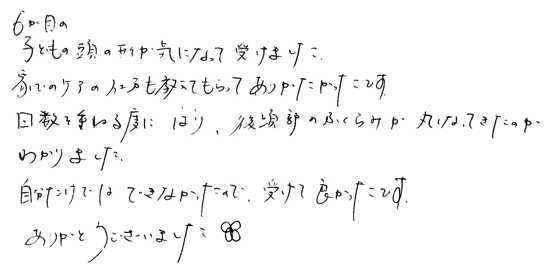 6か月の
子どもの頭の形が気になって受けました。
家でのケアの仕方も教えてもらってありがたかったです。
回数を重ねる度に　　、後頭部のふくらみが丸くなってきたのが
わかりました。
自分だけではできなかったので、受けて良かったです。
ありがとうございました